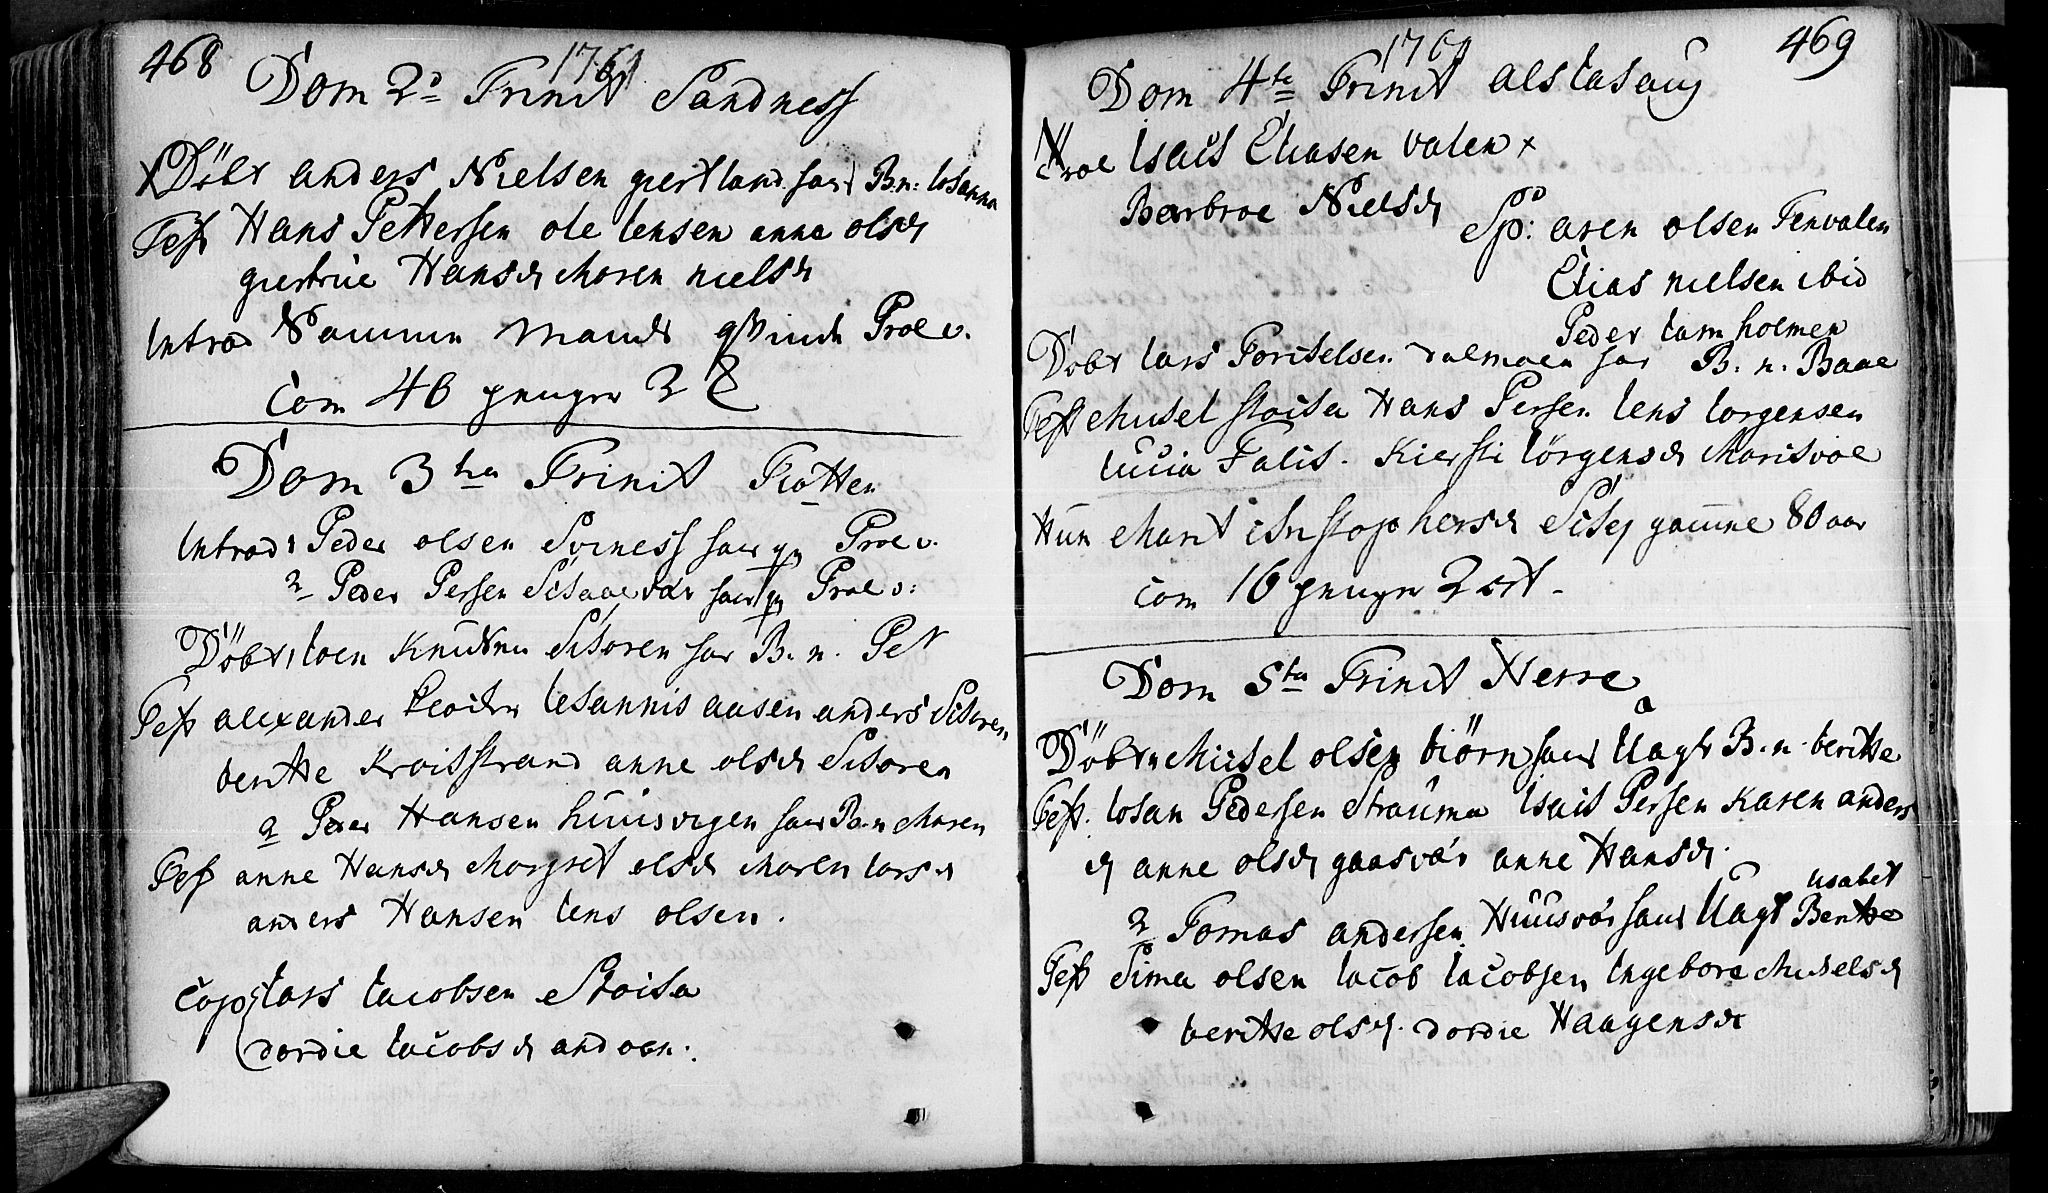 468
1761
Dom 2d Trinit Sandness
Döbt anders Nielsen giertland san B.n: losanna
Test Hans Pettersen ole lensen anna olsd
giertrue Hansd Maren nielsd
Introd Naumn Mands qvinde Prole v.
Com 46 penger 2
Dom 3tia Trinit Tiøtten
Introd 1 Peder olsen Sviness san qv Prole v.
2 Peder Persen vær san qv Prole v:
Döbt 1 loen Knudsen Sisøren san B. n. Pet
Test alexander lesannis aasen anders Sisøren
beritte Kroisstrand anne olsd Sisøren
2 Peder Hansen huusvigen san B.n Maren
Test anne Hansd Margret olsd Maren larsd
anders Hansen lens olsen.
Copo lars lacobsen Stoisa
dordie lacobsd andoen.
469
1761
Dom 4te Trinit alstahaug
Troe Isais Eliasen valen x
Barbroe Nielsd
Sp: aren olsen Tenvalen
Elias nielsen ibid
Peder lamholmen
Döbt lars Toriselsen dalmoen san B. n. Baae
Test Mickel stoisa Hans Persen lens lorgensen
lucia Falis. Kiersti lörgensd Marisvoe
Hun Marit istophersd Sisej gamne 80 aar
Com 16 penger 2 ort.
Dom 5ta Trinit Herre
Döbt Mickel olsen biörn san Uagt B. n. beritte
Test. losan Pedersen Strauma Isais Persen Karen anders
d anne olsd gaasvær anne Hansd.
lisabet
2 Tomas andersen Huusvær san Uagt Beritte
Test Sima olsen lacob lacobsen Ingebore Mickelsd
beritte olsd. dordie Haagensd